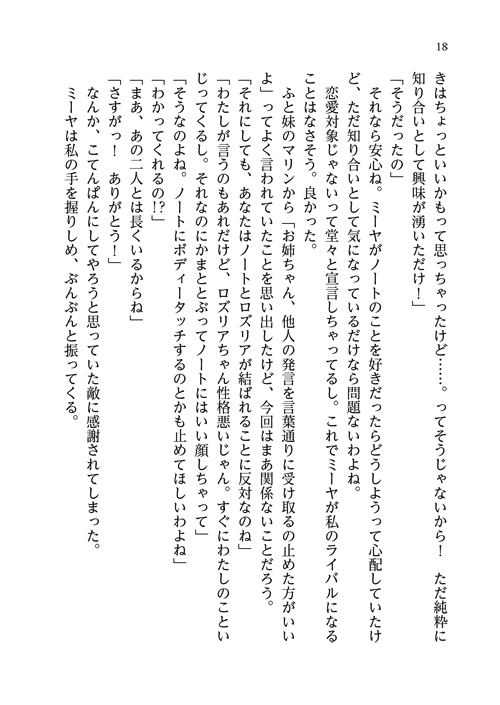 18
きはちょっといいかもって思っちゃったけど……。ってそうじゃないから！　ただ純粋に
知り合いとして興味が湧いただけ！」
「そうだったの」
　それなら安心ね。ミーヤがノートのことを好きだったらどうしようって心配していたけ
ど、ただ知り合いとして気になっているだけなら問題ないわよね。
　恋愛対象じゃないって堂々と宣言しちゃってるし。これでミーヤが私のライバルになる
ことはなさそう。良かった。
　ふと妹のマリンから「お姉ちゃん、他人の発言を言葉通りに受け取るの止めた方がいい
よ」ってよく言われていたことを思い出したけど、今回はまあ関係ないことだろう。
「それにしても、あなたはノートとロズリアが結ばれることに反対なのね」
「わたしが言うのもあれだけど、ロズリアちゃん性格悪いじゃん。すぐにわたしのこといい
じってくるし。それなのにかまととぶってノートにはいい顔しちゃって」
「そうなのよね。ノートにボディータッチするのとかも止めてほしいわよね」
「わかってくれるの!?」
「まあ、あの二人とは長くいるからね」
「さすがっ！　ありがとう！」
　なんか、こてんぱんにしてやろうと思っていた敵に感謝されてしまった。
　ミーヤは私の手を握りしめ、ぶんぶんと振ってくる。